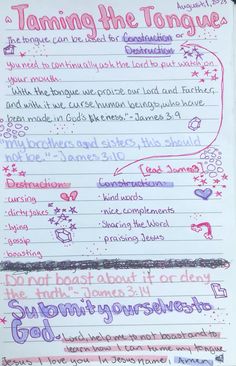 August 1, 2023
Taming the Tongue
The tongue can be used for Construction or
Destruction
you need to continually ask the Lord to put water on
your mouth.
"With the tongue we praise our Lord and Farther,
and with it we curse human beings, who have
been made in God's likeness." -James 3:9
"my brothers and sisters, this should
not be." -James 3:10
[Read James 3]
Destruction Construction
· cursing · kind words
· dirty jokes · nice complements
· lying · Sharing the Word
· gossip · praising Jesus
· boasting
Do not boast about it or deny
the truth." -James 3:14
Submit yourselves to
God.
Lord, help me to not boast and to
learn how I can tame my tongue
Jesus I love you In Jesus name, Amen